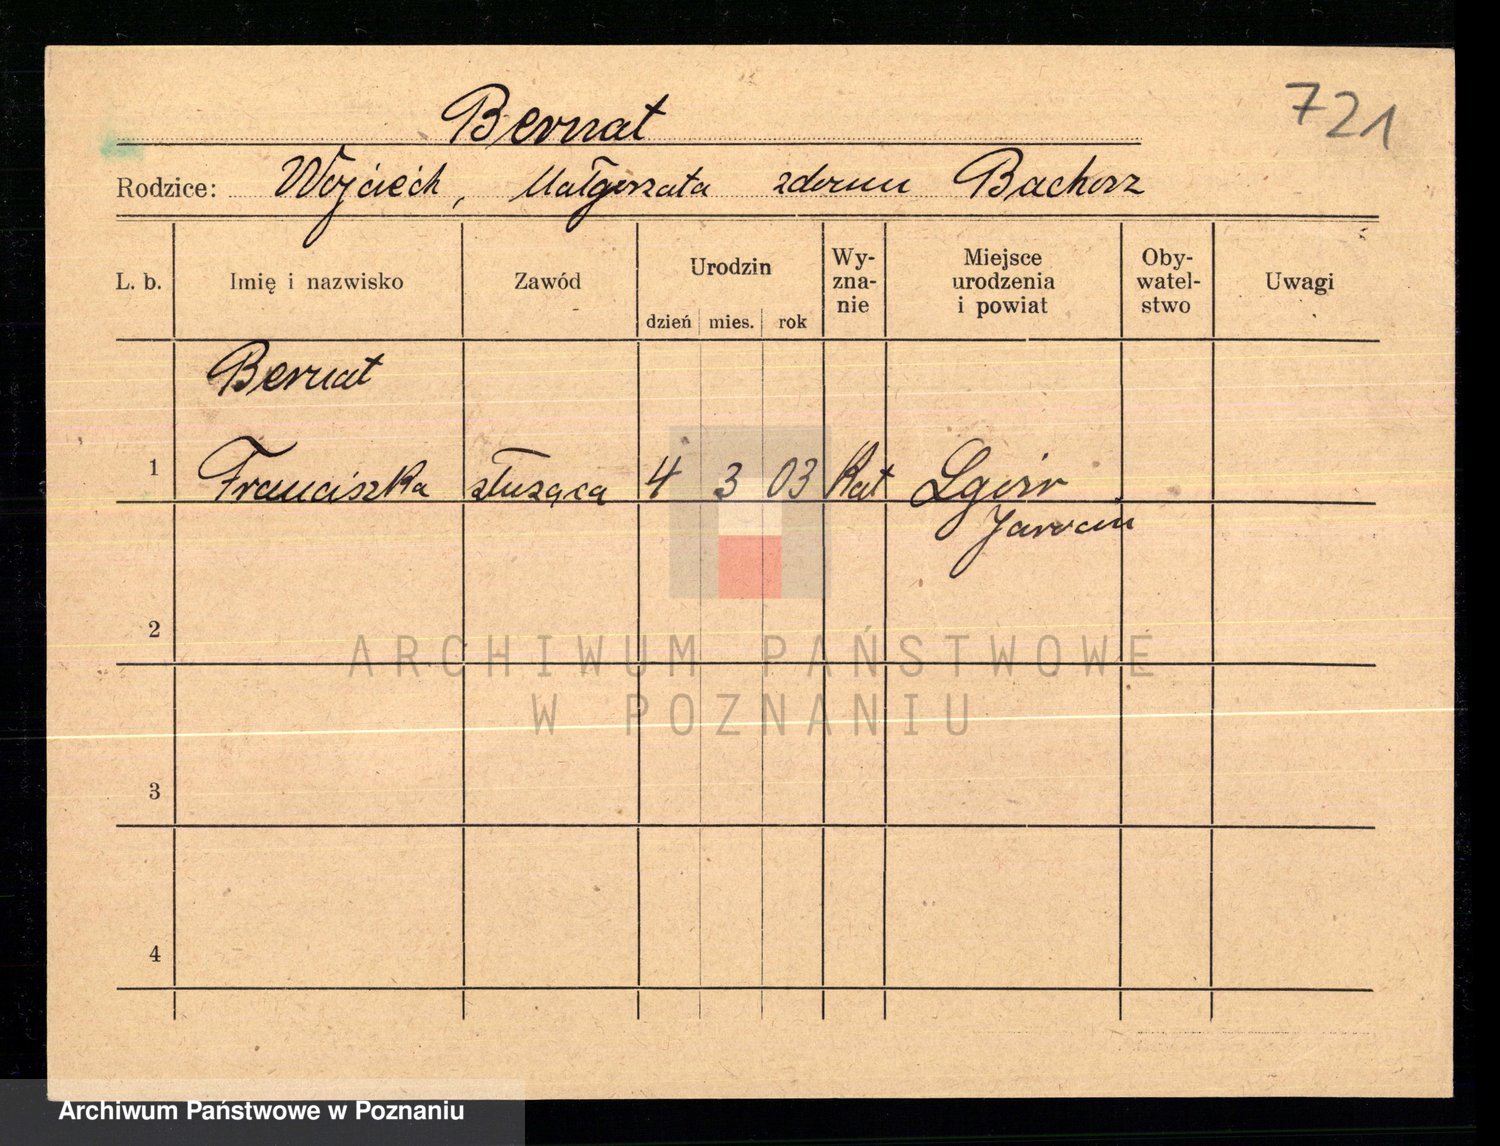 721
Bernat
Rodzice: Wojciech, Małgorzata z domu Bachorz
L. b. Imię i nazwisko Zawód Urodzin Wy- zna- nie Miejsce urodzenia i powiat Oby- watel- stwo Uwagi
dzień mies. rok
Bernat
1 Franciszka służąca 4 3 03 Kat Lgów
Jarocin
2
3
4
ARCHIWUM PAŃSTWOWE
W POZNANIU
Archiwum Państwowe w Poznaniu